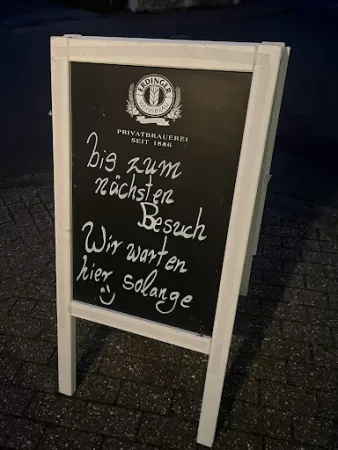 ERDINGER
PRIVATBRAUEREI
SEIT 1886
bis zum
nächsten
Besuch
Wir warten
hier solange